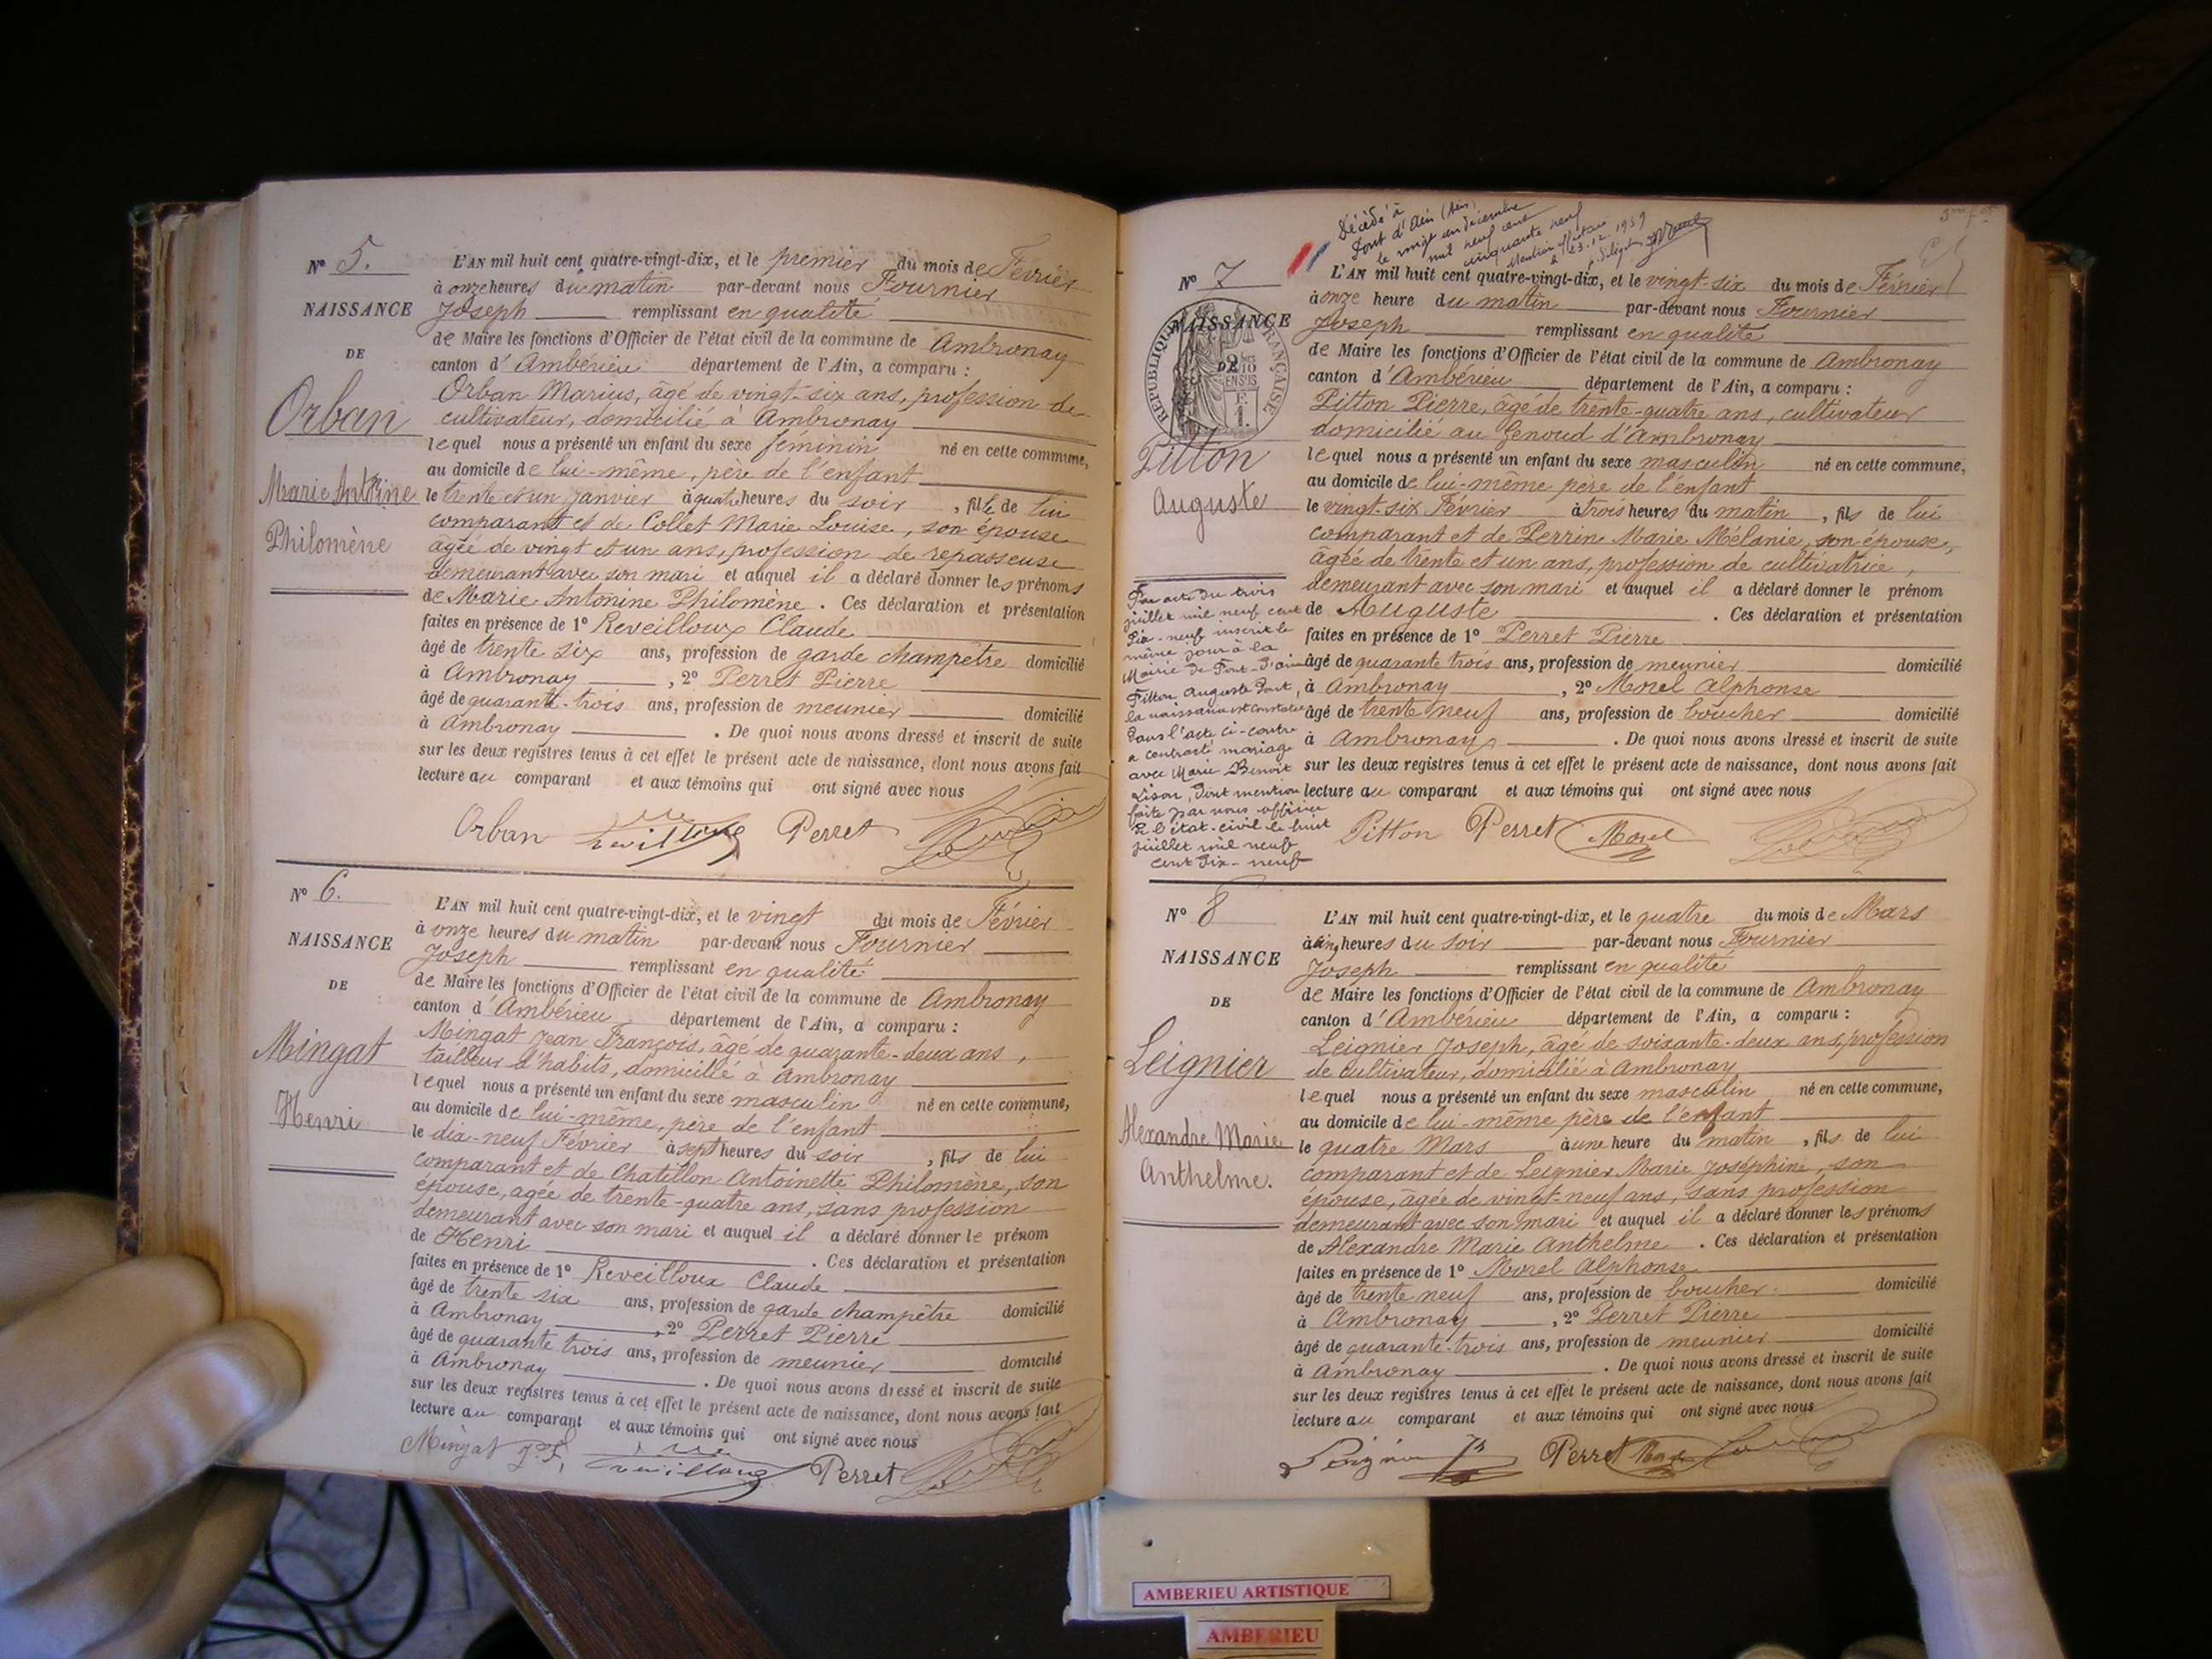 N° 5.
NAISSANCE
DE
Orban
Marie Antonine
Philomène
L'AN mil huit cent quatre-vingt-dix, et le premier du mois de Février
à onze heures du matin par-devant nous Fournier
Joseph remplissant en qualité
de Maire les fonctions d'Officier de l'état civil de la commune de Ambronay
canton d'Ambérieu département de l'Ain, a comparu :
Orban Marius, âgé de vingt-six ans, profession de
cultivateur, domicilié à Ambronay
lequel nous a présenté un enfant du sexe féminin né en cette commune,
au domicile de lui-même, père de l'enfant
le trente et un Janvier à quatre heures du soir, fille de lui
comparant et de Collet Marie Louise, son épouse
âgée de vingt et un ans, profession de repasseuse
demeurant avec son mari et auquel il a déclaré donner les prénoms
de Marie Antonine Philomène. Ces déclaration et présentation
faites en présence de 1° Reveilloux Claude
âgé de trente six ans, profession de garde champêtre domicilié
à Ambronay, 2° Perret Pierre
âgé de quarante-trois ans, profession de meunier domicilié
à Ambronay. De quoi nous avons dressé et inscrit de suite
sur les deux registres tenus à cet effet le présent acte de naissance, dont nous avons fait
lecture au comparant et aux témoins qui ont signé avec nous
Orban Perret
N° 6.
NAISSANCE
DE
Mingat
Henri
L'AN mil huit cent quatre-vingt-dix, et le vingt du mois de Février
à onze heures du matin par-devant nous Fournier
Joseph remplissant en qualité
de Maire les fonctions d'Officier de l'état civil de la commune de Ambronay
canton d'Ambérieu département de l'Ain, a comparu :
Mingat Jean François, âgé de quarante-deux ans,
tailleur d'habits, domicilié à Ambronay
lequel nous a présenté un enfant du sexe masculin né en cette commune,
au domicile de lui-même, père de l'enfant
le dix-neuf Février à sept heures du soir, fils de lui
comparant et de Chatillon Antoinette Philomène, son
épouse, agée de trente-quatre ans, sans profession
demeurant avec son mari et auquel il a déclaré donner le prénom
de Henri. Ces déclaration et présentation
faites en présence de 1° Reveilloux Claude
âgé de trente six ans, profession de garde champêtre domicilié
à Ambronay, 2° Perret Pierre
âgé de quarante trois ans, profession de meunier domicilié
à Ambronay. De quoi nous avons dressé et inscrit de suite
sur les deux registres tenus à cet effet le présent acte de naissance, dont nous avons fait
lecture au comparant et aux témoins qui ont signé avec nous
Mingat J.F. Perret
Décédé à
Pont d'Ain (Ain)
le vingt un décembre
mil neuf cent
cinquante neuf
Mention
le 23.12.1959
N° 7
NAISSANCE
DE
RÉPUBLIQUE FRANÇAISE
2/10 EN SUS
F. 1.
Pitton
Auguste
Par acte du trois
juillet mil neuf cent
Dix-neuf inscrit le
même jour à la
Mairie de Pont-d'ain
Pitton Auguste dont
la naissance est constatée
dans l'acte ci-contre
a contracté mariage
avec Marie Benoit
dont mention
faite par nous officier
de l'état-civil le huit
juillet mil neuf
cent dix-neuf
L'AN mil huit cent quatre-vingt-dix, et le vingt-six du mois de Février
à onze heure du matin par-devant nous Fournier
Joseph remplissant en qualité
de Maire les fonctions d'Officier de l'état civil de la commune de Ambronay
canton d'Ambérieu département de l'Ain, a comparu :
Pitton Pierre, âgé de trente-quatre ans, cultivateur
domicilié au Genoud d'Ambronay
lequel nous a présenté un enfant du sexe masculin né en cette commune,
au domicile de lui-même père de l'enfant
le vingt-six Février à trois heures du matin, fils de lui
comparant et de Perrine Marie Mélanie, son épouse,
âgée de trente et un ans, profession de cultivatrice,
demeurant avec son mari et auquel il a déclaré donner le prénom
de Auguste. Ces déclaration et présentation
faites en présence de 1° Perret Pierre
âgé de quarante trois ans, profession de meunier domicilié
à Ambronay, 2° Morel Alphonse
âgé de trente neuf ans, profession de boucher domicilié
à Ambronay. De quoi nous avons dressé et inscrit de suite
sur les deux registres tenus à cet effet le présent acte de naissance, dont nous avons fait
lecture au comparant et aux témoins qui ont signé avec nous
Pitton Perret Morel
N° 8
NAISSANCE
DE
Leignier
Alexandre Marie
Anthelme.
L'AN mil huit cent quatre-vingt-dix, et le quatre du mois de Mars
à cinq heures du soir par-devant nous Fournier
Joseph remplissant en qualité
de Maire les fonctions d'Officier de l'état civil de la commune de Ambronay
canton d'Ambérieu département de l'Ain, a comparu :
Leignier Joseph, âgé de soixante-deux ans, profession
de cultivateur, domicilié à Ambronay
lequel nous a présenté un enfant du sexe masculin né en cette commune,
au domicile de lui-même père de l'enfant
le quatre Mars à une heure du matin, fils de lui
comparant et de Leignier Marie Joséphine, son
épouse, âgée de vingt-neuf ans, sans profession
demeurant avec son mari et auquel il a déclaré donner les prénoms
de Alexandre Marie Anthelme. Ces déclaration et présentation
faites en présence de 1° Morel Alphonse
âgé de trente neuf ans, profession de boucher domicilié
à Ambronay, 2° Perret Pierre
âgé de quarante-trois ans, profession de meunier domicilié
à Ambronay. De quoi nous avons dressé et inscrit de suite
sur les deux registres tenus à cet effet le présent acte de naissance, dont nous avons fait
lecture au comparant et aux témoins qui ont signé avec nous
Leignier Perret Morel
AMBERIEU ARTISTIQUE
AMBERIEU